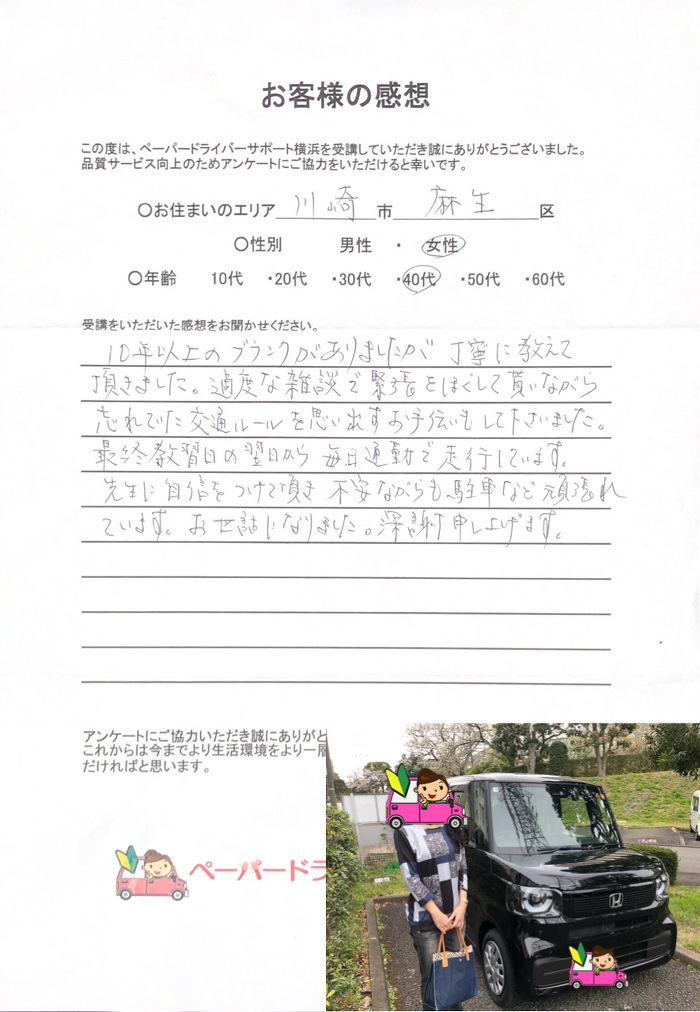 お客様の感想
この度は、ペーパードライバーサポート横浜を受講していただき誠にありがとうございました。
品質サービス向上のためアンケートにご協力をいただけると幸いです。
〇お住まいのエリア 川崎 市 麻生 区
〇性別 男性 ・ 女性
〇年齢 10代 ・20代 ・30代 ・40代 ・50代 ・60代
受講をいただいた感想をお聞かせください。
10年以上のブランクがありましたが 丁寧に教えて
頂きました。適度な雑談で緊張をほぐして貰いながら
忘れていた交通ルールを思い出すお手伝いもして下さいました。
最終教習日の翌日から 毎日通勤で走行しています。
先生に自信をつけて頂き 不安ながらも駐車など頑張れ
ています。お世話になりました。深謝申し上げます。
アンケートにご協力いただき誠にありがと
これからは今までより生活環境をより一層
だければと思います。
ペーパードラ